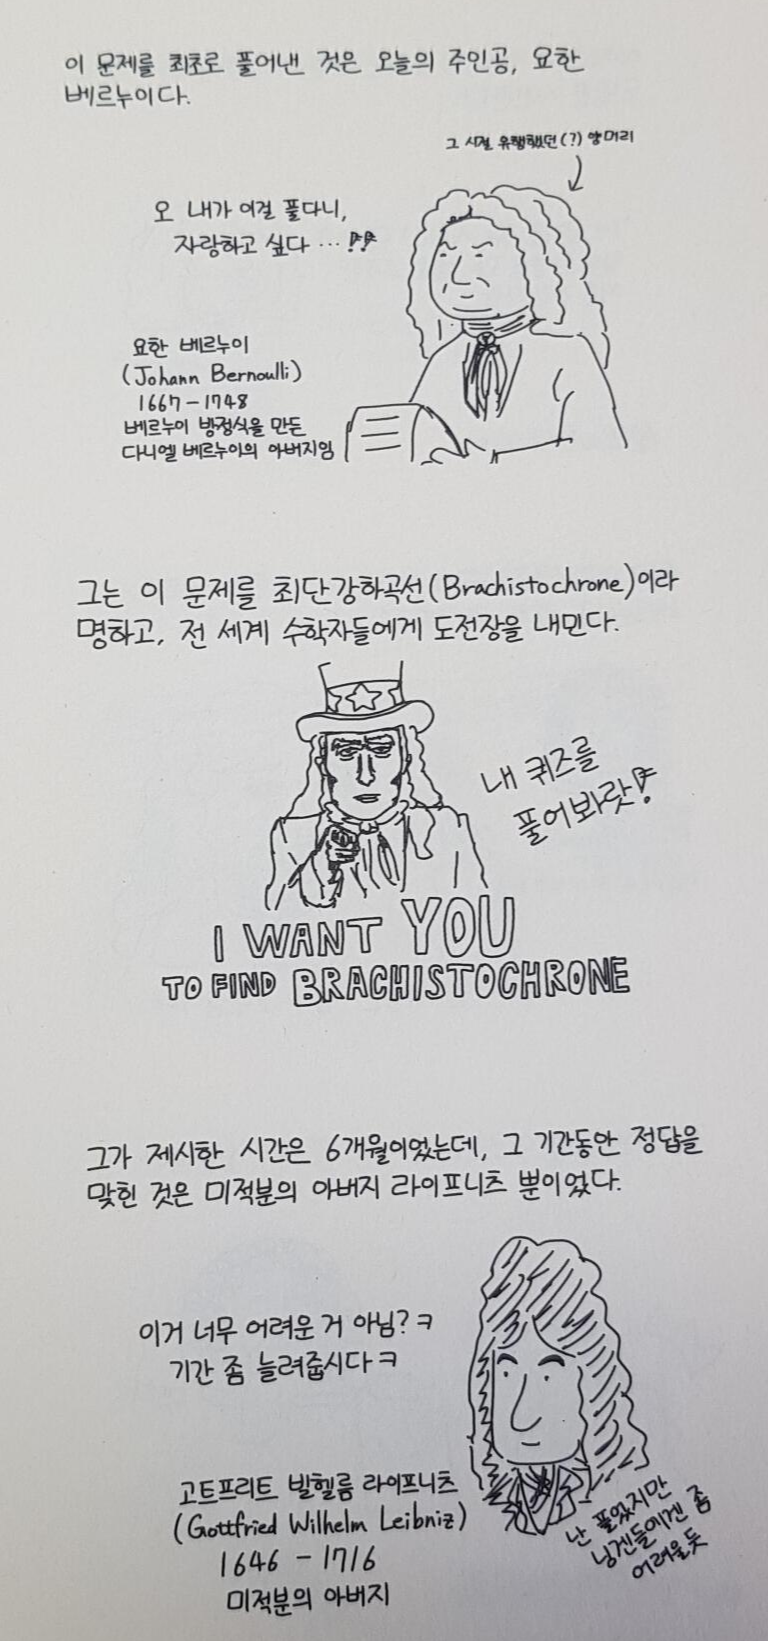 이 문제를 최초로 풀어낸 것은 오늘의 주인공, 요한
베르누이다.
그 시절 유행했던(?) 양머리
오 내가 이걸 풀다니,
자랑하고 싶다 …!!
요한 베르누이
(Johann Bernoulli)
1667-1748
베르누이 방정식을 만든
다니엘 베르누이의 아버지임
그는 이 문제를 최단강하곡선(Brachistochrone)이라
명하고, 전 세계 수학자들에게 도전장을 내민다.
내 퀴즈를
풀어봐랏!
I WANT YOU
TO FIND BRACHISTOCHRONE
그가 제시한 시간은 6개월이었는데, 그 기간동안 정답을
맞힌 것은 미적분의 아버지 라이프니츠 뿐이었다.
이거 너무 어려운 거 아님? ㅋ
기간 좀 늘려줍시다 ㅋ
고트프리트 빌헬름 라이프니츠
(Gottfried Wilhelm Leibniz)
1646 - 1716
미적분의 아버지
난 풀었지만
닝겐들에겐 좀
어려울듯